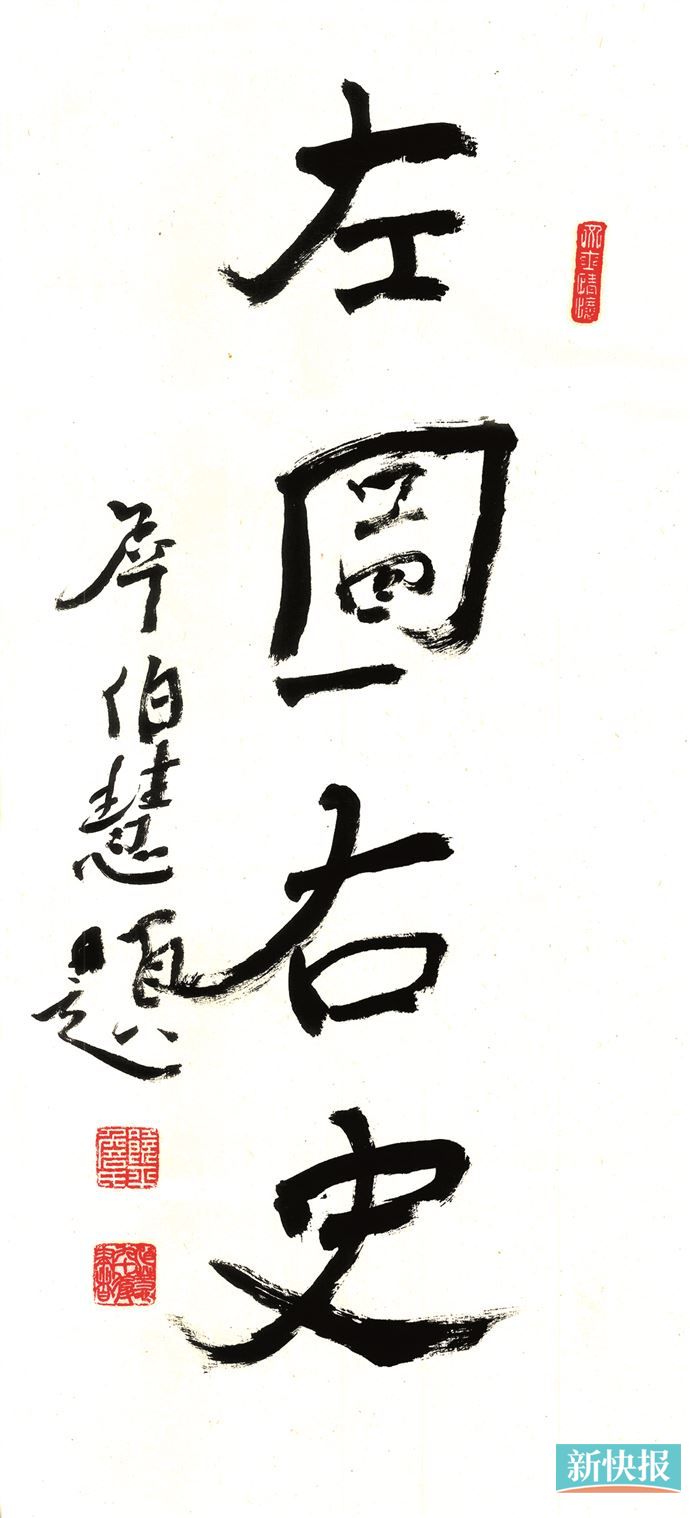 左圖右史
詹伯慧題
新快报